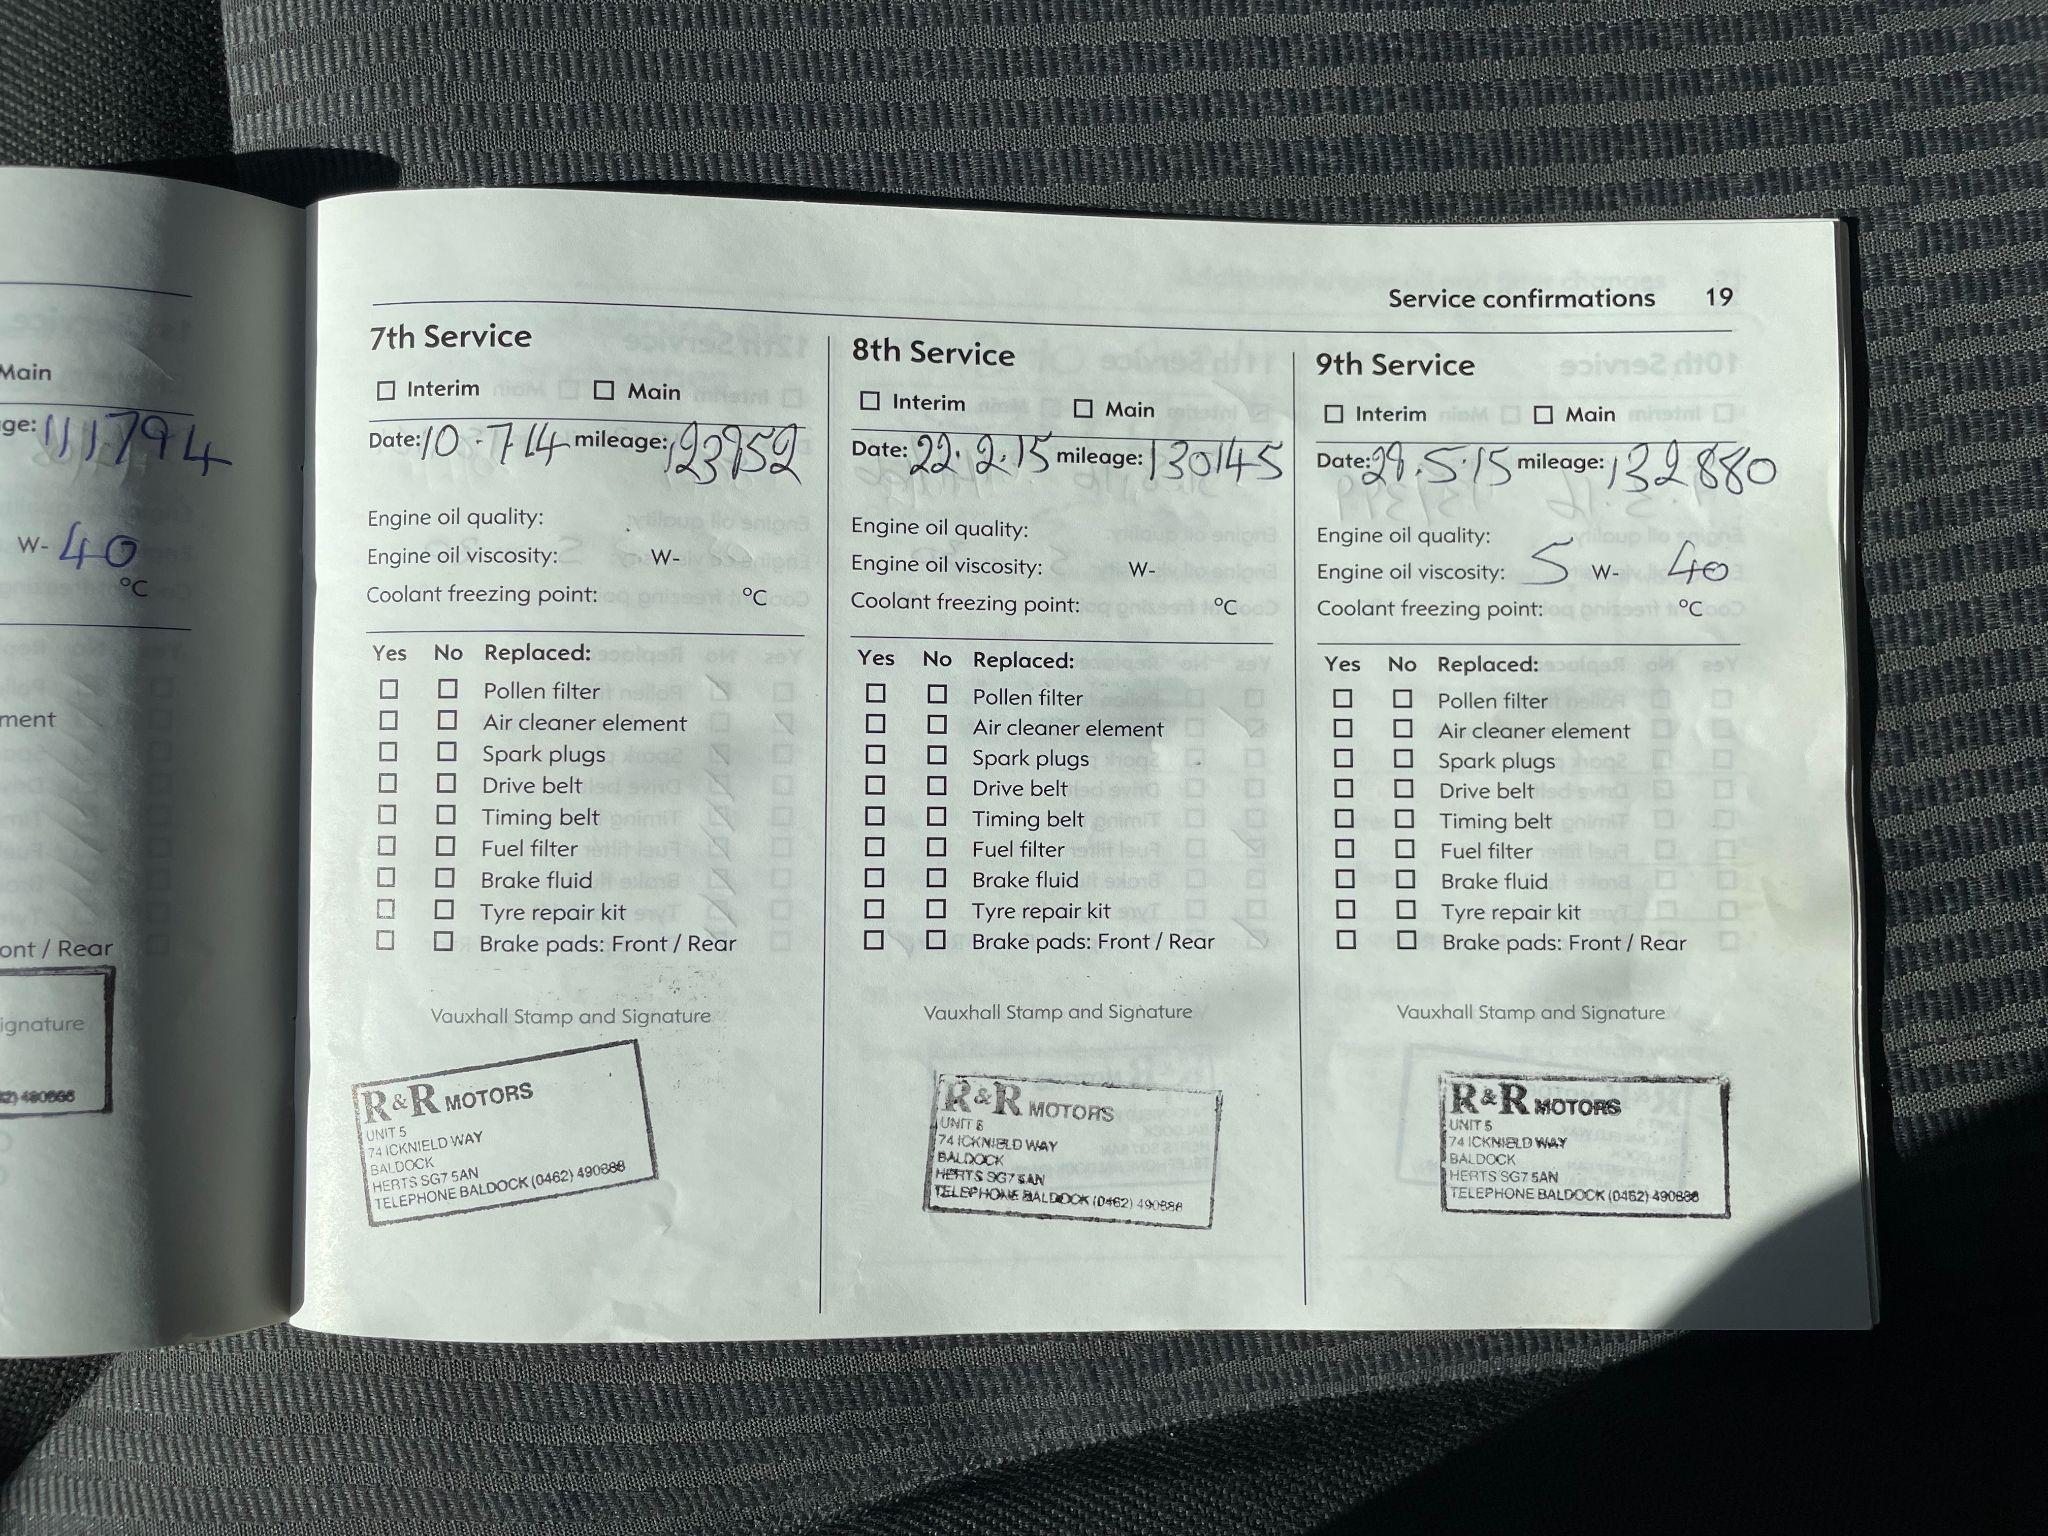 Main
ge: 111794
W- 40
°C
ment
ont / Rear
ignature
Service confirmations 19
7th Service
Interim Main
Date: 10.714 mileage: 123952
Engine oil quality:
Engine oil viscosity: W-
Coolant freezing point: °C
Yes No Replaced:
Pollen filter
Air cleaner element
Spark plugs
Drive belt
Timing belt
Fuel filter
Brake fluid
Tyre repair kit
Brake pads: Front / Rear
Vauxhall Stamp and Signature
R&R MOTORS
UNIT 5
74 ICKNIELD WAY
BALDOCK
HERTS SG7 5AN
TELEPHONE BALDOCK (0462) 490888
8th Service
Interim Main
Date: 22.2.15 mileage: 130145
Engine oil quality:
Engine oil viscosity: W-
Coolant freezing point: °C
Yes No Replaced:
Pollen filter
Air cleaner element
Spark plugs
Drive belt
Timing belt
Fuel filter
Brake fluid
Tyre repair kit
Brake pads: Front / Rear
Vauxhall Stamp and Signature
R&R MOTORS
UNIT 5
74 ICKNIELD WAY
BALDOCK
HERTS SG7 5AN
TELEPHONE BALDOCK (0462) 490888
9th Service
Interim Main
Date: 29.5.15 mileage: 132880
Engine oil quality:
Engine oil viscosity: 5 W- 40
Coolant freezing point: °C
Yes No Replaced:
Pollen filter
Air cleaner element
Spark plugs
Drive belt
Timing belt
Fuel filter
Brake fluid
Tyre repair kit
Brake pads: Front / Rear
Vauxhall Stamp and Signature
R&R MOTORS
UNIT 5
74 ICKNIELD WAY
BALDOCK
HERTS SG7 5AN
TELEPHONE BALDOCK (0462) 490888